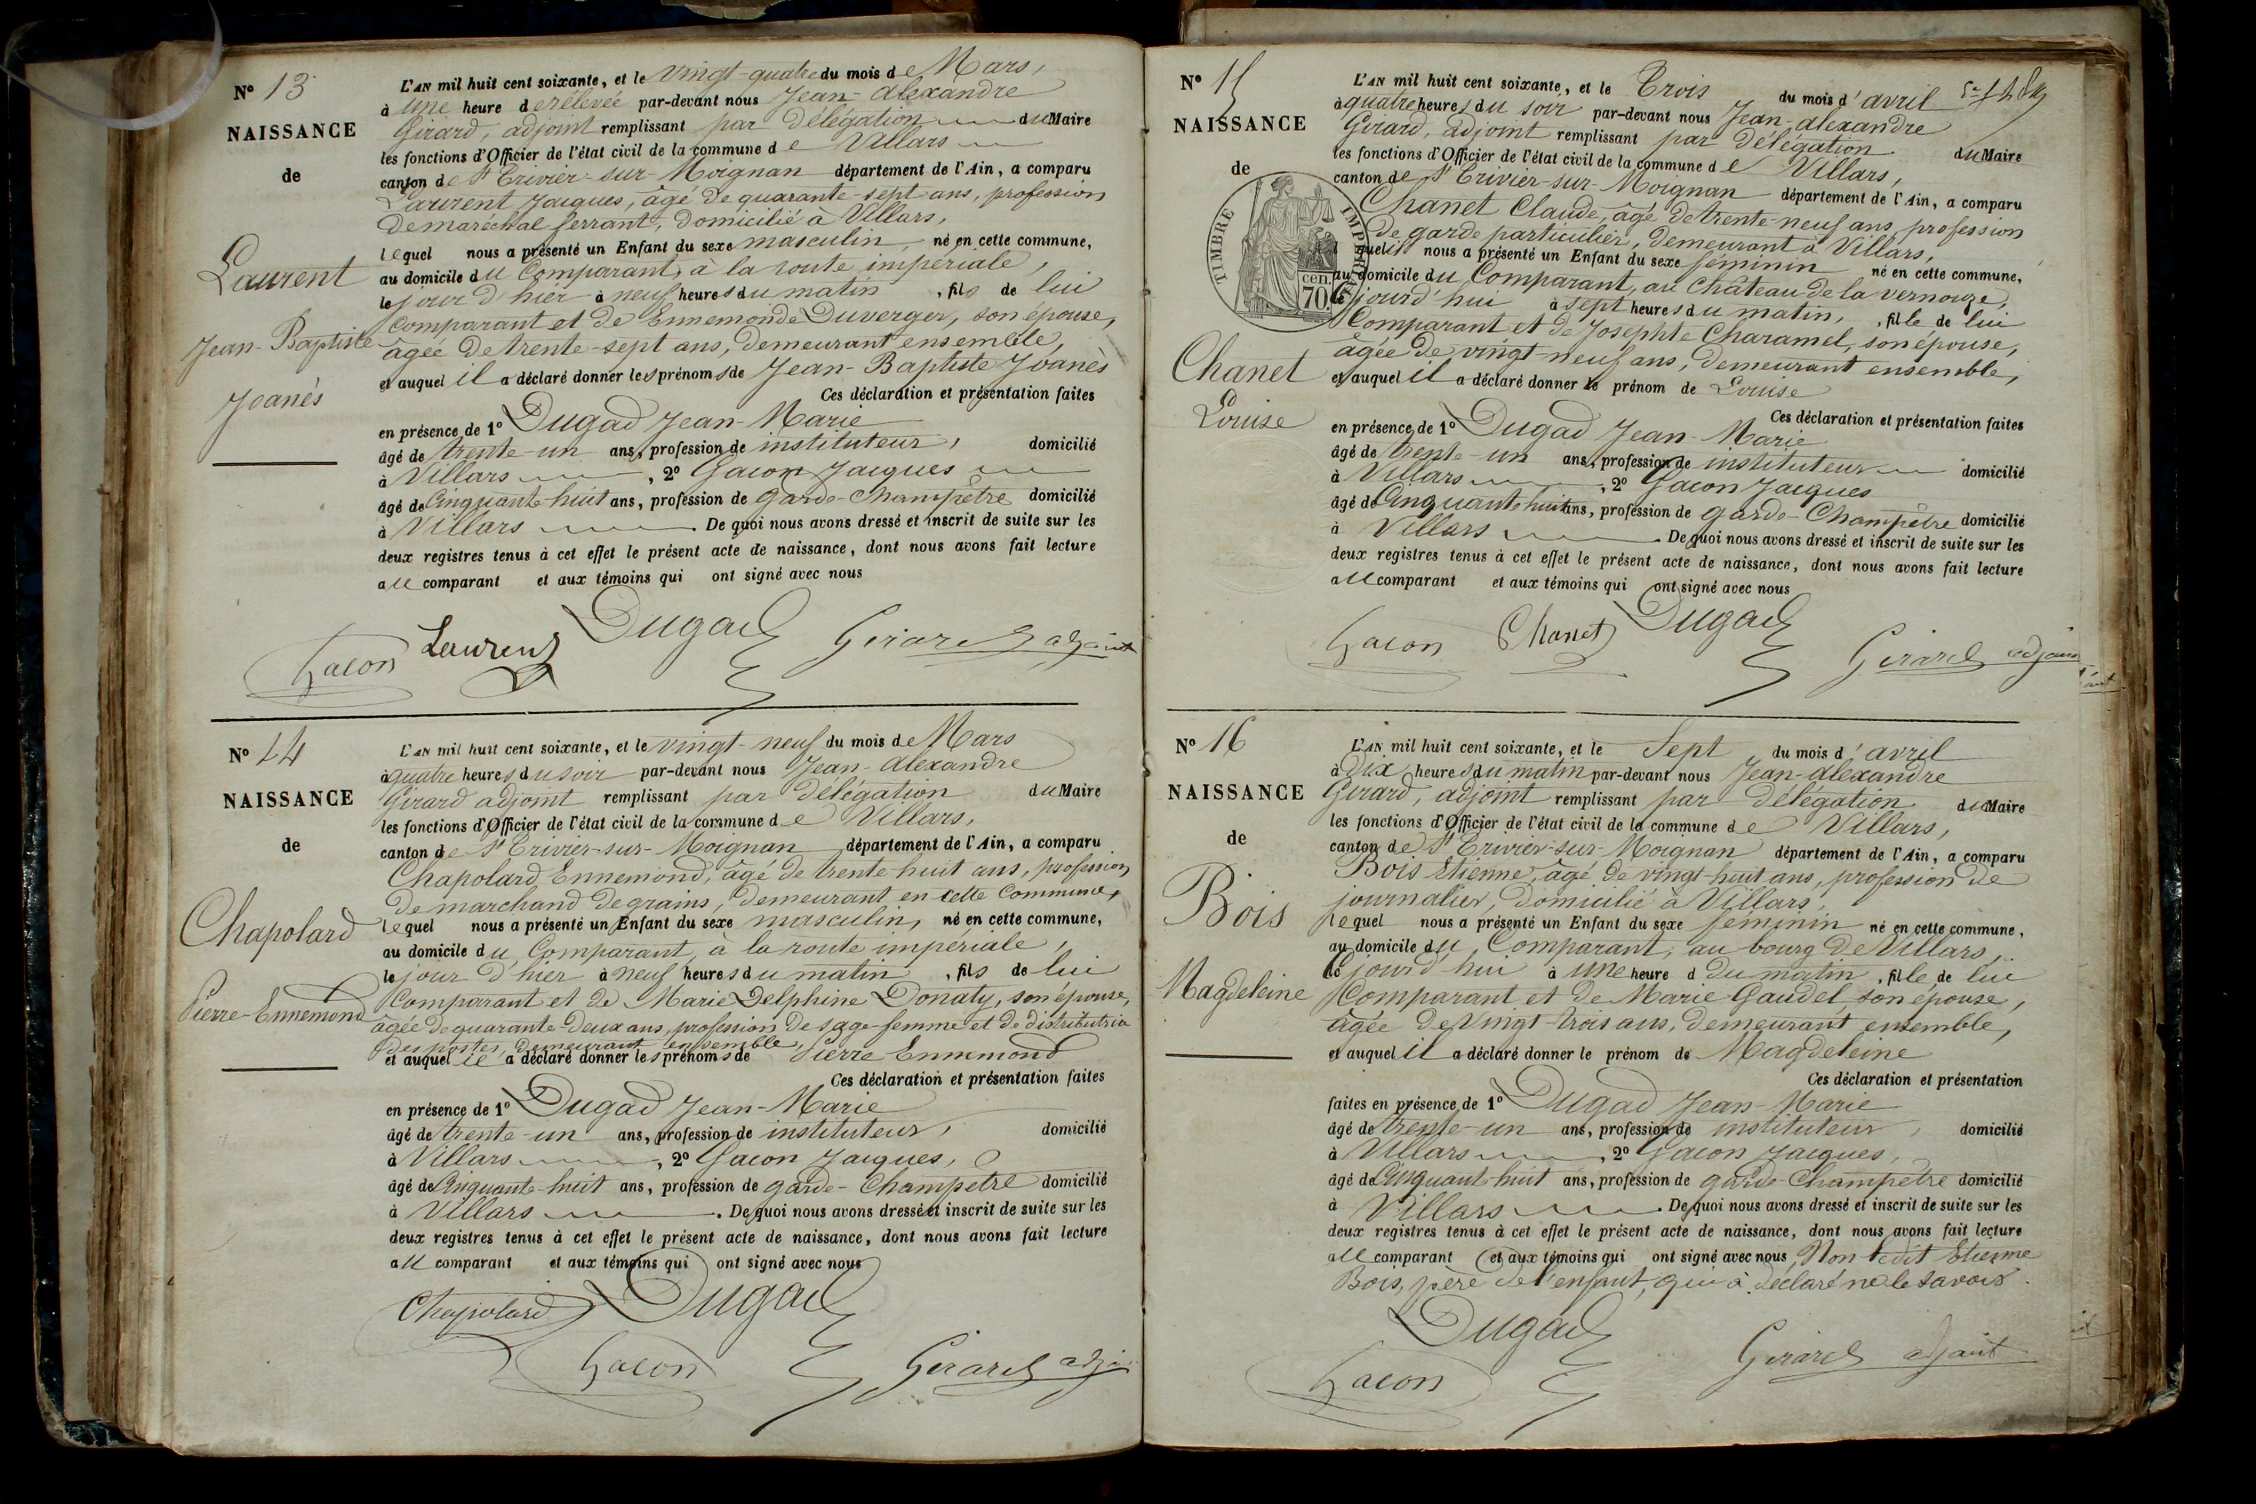 N° 13
NAISSANCE
de
Laurent
Jean-Baptiste
Joanès
L'AN mil huit cent soixante, et le vingt-quatre du mois de Mars,
à une heure de relevée par-devant nous Jean-Alexandre
Girard, adjoint remplissant par délégation du Maire
les fonctions d'Officier de l'état civil de la commune de Villars
canton de St Trivier-sur-Moignan département de l'Ain, a comparu
Laurent Jacques, âgé de quarante-sept ans, profession
de maréchal ferrant, domicilié à Villars,
lequel nous a présenté un Enfant du sexe masculin, né en cette commune,
au domicile du Comparant, à la route impériale,
le jour d'hier à neuf heures du matin, fils de lui
Comparant et de Ennemonde Duverger, son épouse,
âgée de trente-sept ans, demeurant ensemble,
et auquel il a déclaré donner les prénoms de Jean-Baptiste Joanès
Ces déclaration et présentation faites
en présence de 1° Dugad Jean-Marie
âgé de trente-un ans, profession de instituteur, domicilié
à Villars, 2° Gacon Jacques
âgé de Cinquante-huit ans, profession de garde-Champêtre domicilié
à Villars. De quoi nous avons dressé et inscrit de suite sur les
deux registres tenus à cet effet le présent acte de naissance, dont nous avons fait lecture
au comparant et aux témoins qui ont signé avec nous
Gacon Laurent Dugad Girard adjoint
N° 14
NAISSANCE
de
Chapolard
Pierre-Ennemond
L'AN mil huit cent soixante, et le vingt-neuf du mois de Mars
à quatre heures du soir par-devant nous Jean-Alexandre
Girard adjoint remplissant par délégation du Maire
les fonctions d'Officier de l'état civil de la commune de Villars,
canton de St Trivier-sur-Moignan département de l'Ain, a comparu
Chapolard Ennemond, âgé de trente-huit ans, profession
de marchand de grains, demeurant en cette Commune,
lequel nous a présenté un Enfant du sexe masculin, né en cette commune,
au domicile du Comparant, à la route impériale,
le jour d'hier à neuf heures du matin, fils de lui
Comparant et de Marie Delphine Donaty, son épouse,
âgée de quarante-deux ans, profession de sage-femme et de distributrice
des postes, demeurant ensemble,
et auquel il a déclaré donner les prénoms de Pierre Ennemond
Ces déclaration et présentation faites
en présence de 1° Dugad Jean-Marie
âgé de trente-un ans, profession de instituteur, domicilié
à Villars, 2° Gacon Jacques,
âgé de Cinquante-huit ans, profession de garde-Champêtre domicilié
à Villars. De quoi nous avons dressé et inscrit de suite sur les
deux registres tenus à cet effet le présent acte de naissance, dont nous avons fait lecture
au comparant et aux témoins qui ont signé avec nous
Chapolard Dugad
Gacon Girard adj
N° 15
NAISSANCE
de
TIMBRE IMPERIAL
70 cen.
Chanet
Louise
L'AN mil huit cent soixante, et le Trois du mois d'avril
à quatre heures du soir par-devant nous Jean-Alexandre
Girard, adjoint remplissant par délégation du Maire
les fonctions d'Officier de l'état civil de la commune de Villars,
canton de St Trivier-sur-Moignan département de l'Ain, a comparu
Chanet Claude, âgé de trente-neuf ans, profession
de garde particulier, demeurant à Villars,
lequel nous a présenté un Enfant du sexe féminin né en cette commune,
au domicile du Comparant, au Château de la vernouze,
le jourd'hui à sept heures du matin, fille de lui
Comparant et de Josephte Charamel, son épouse,
âgée de vingt-neuf ans, demeurant ensemble,
et auquel il a déclaré donner le prénom de Louise
Ces déclaration et présentation faites
en présence de 1° Dugad Jean-Marie
âgé de trente-un ans, profession de instituteur domicilié
à Villars, 2° Gacon Jacques
âgé de Cinquante-huit ans, profession de garde-Champêtre domicilié
à Villars. De quoi nous avons dressé et inscrit de suite sur les
deux registres tenus à cet effet le présent acte de naissance, dont nous avons fait lecture
au comparant et aux témoins qui ont signé avec nous
Gacon Chanet Dugad Girard adjoin
N° 16
NAISSANCE
de
Bois
Magdeleine
L'AN mil huit cent soixante, et le Sept du mois d'avril
à Dix heures du matin par-devant nous Jean-Alexandre
Girard, adjoint remplissant par délégation du Maire
les fonctions d'Officier de l'état civil de la commune de Villars,
canton de St Trivier-sur-Moignan département de l'Ain, a comparu
Bois Etienne, âgé de vingt-huit ans, profession de
journalier, domicilié à Villars,
lequel nous a présenté un Enfant du sexe féminin né en cette commune,
au domicile du Comparant, au bourg de Villars,
le jourd'hui à une heure d du matin, fille de lui
Comparant et de Marie Gaudet, son épouse,
âgée de Vingt-trois ans, demeurant ensemble,
et auquel il a déclaré donner le prénom de Magdeleine
Ces déclaration et présentation
faites en présence de 1° Dugad Jean-Marie
âgé de trente-un ans, profession de instituteur, domicilié
à Villars, 2° Gacon Jacques,
âgé de Cinquante-huit ans, profession de garde-Champêtre domicilié
à Villars. De quoi nous avons dressé et inscrit de suite sur les
deux registres tenus à cet effet le présent acte de naissance, dont nous avons fait lecture
au comparant et aux témoins qui ont signé avec nous, Non ledit Etienne
Bois, père de l'enfant, qui à déclaré ne le savoir.
Dugad
Gacon Girard adjoint